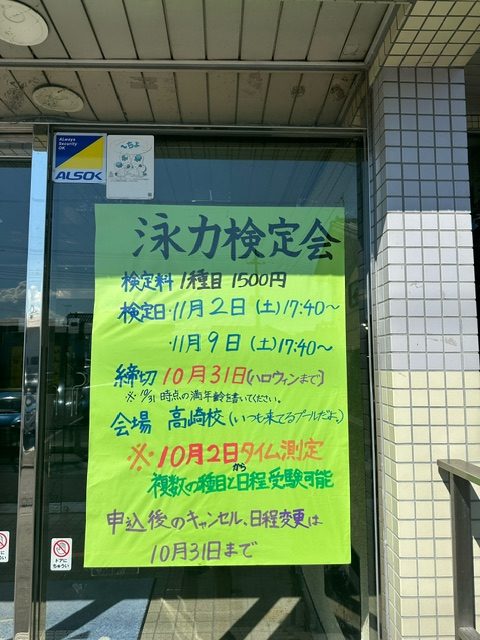 Always
Security
OK
ALSOK
～ちょ
泳力検定会
検定料 1種目 1500円
検定日・11月2日(土)17:40～
・11月9日(土)17:40～
締切 10月31日(ハロウィンまで)
※10/31時点の満年齢を書いてください。
会場 高崎校(いつも来てるプールだよ。)
※10月2日タイム測定
から
複数の種目と日程受験可能
申込後のキャンセル、日程変更は
10月31日まで
ドアに
ちゅうい